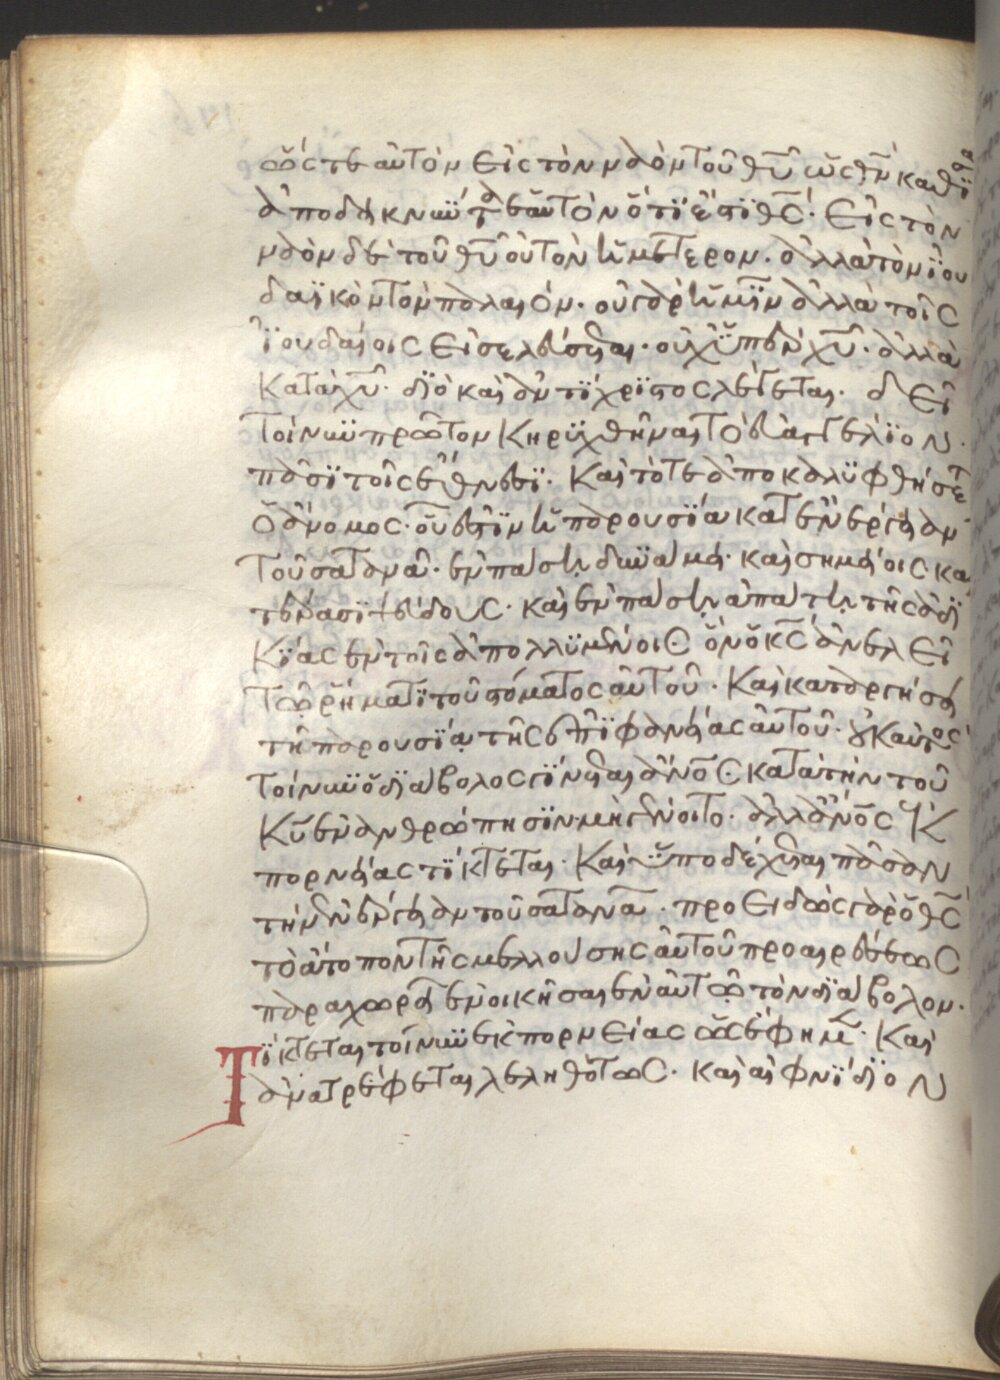 ὥστε αὐτὸν εἰς τὸν ναὸν τοῦ θυ ὡς θν καθίσαι
ἀποδεικνύντα ἑαυτὸν ὅτι ἔστι θς· εἰς τὸν
ναὸν δὲ τοῦ θυ οὐ τὸν ἡμέτερον. ἀλλὰ τὸν ἰου
δαϊκὸν τὸν παλαιόν. οὐ γὰρ ἡμῖν ἀλλὰ τοῖς
ἰουδαίοις εἰσελεύσεται· οὐχ ὑπὲρ χυ. ἀλλὰ
κατὰ χυ· διὸ καὶ ἀντίχριστος λέγεται· δεῖ
τοίνυν πρῶτον κηρυχθῆναι τὸ εὐαγγέλιον
πᾶσι τοῖς ἔθνεσι· καὶ τότε ἀποκαλυφθήσεται
ὁ ἄνομος· οὗ ἐστὶν ἡ παρουσία κατ' ἐνέργειαν
τοῦ σατανᾶ· ἐν πάσῃ δυνάμει· καὶ σημείοις καὶ
τέρασι ψεύδους· καὶ ἐν πάσῃ ἀπάτῃ τῆς ἀδι
κίας ἐν τοῖς ἀπολλυμένοις ὃν ὁ κς ἀνελεῖ
τῷ ῥήματι τοῦ στόματος αὐτοῦ· καὶ καταργήσει
τῇ παρουσίᾳ τῆς ἐπιφανείας αὐτοῦ· οὐκ αὐτὸς
τοίνυν ὁ διάβολος γίνεται ἄνος κατὰ τὴν τοῦ
κυ ἐνανθρώπησιν· μὴ γένοιτο· ἀλλ' ἄνος ἐκ
πορνείας τίκτεται· καὶ ὑποδέχεται πᾶσαν
τὴν ἐνέργειαν τοῦ σατανᾶ· προειδὼς γὰρ ὁ θς
τὸ ἄτοπον τῆς μελλούσης αὐτοῦ προαιρέσεως
παραχωρεῖ ἐνοικῆσαι ἐν αὐτῷ τὸν διάβολον.
Τίκτεται τοίνυν ἐκ πορνείας ὡς ἔφημεν· καὶ
ἀνατρέφεται λεληθότως· καὶ αἰφνίδιον